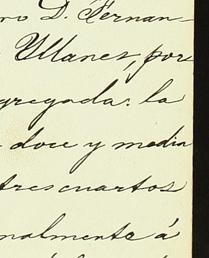 ro D. Fernan-
Yllanes, por
gregada: la
doce y media
tres cuartos
nalmente á